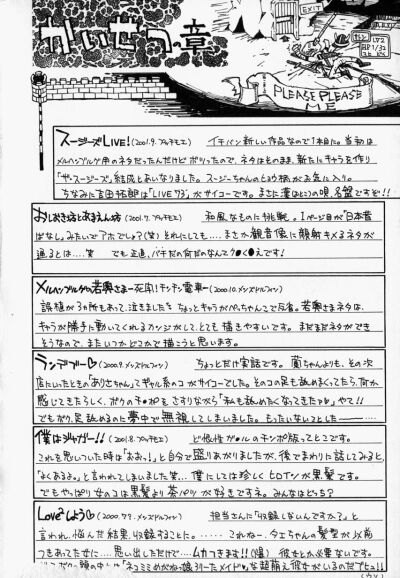 かいせつの章
EXIT
LV2
HP 1/32
PLEASE PLEASE
ME
スージーズLIVE! (2001.9.プルチモエ) イチバン新しい作品なので1本目に。当初は
メルヘンブルゲ用のネタだったんだけどボツったので、ネタはそのまま、新たにキャラを作り
「ザ・スージーズ」結成とあいなりました。スージーちゃんのとうり柄がお気に入り。
ちなみに吉田拓郎は「LIVE'73」がサイコーです。まさに漢はここの唄、名盤ですぞ!!
おしおき坊とおまえん坊 (2001.7.プルチモエ) 和風なものに挑戦。1ページ目が「日本昔
ばなし」みたいでアホでしょ?(笑) それにしても…まさか観音様に顔射キメるネタが
通るとは…笑 でも正直、バチだの何だのなんて
メルヘンブルゲの若奥さまー死闘!チンチン電車ー (2000.10.メンズドルフィン)
誤植が3カ所もあって、泣きましたな ちょっとキャラがぺっちゃんこで反省。若奥さまネタは、
キャラが勝手に動いてくれるカンジがして、とても描きやすいです。まだまだネタができ
そうなので、またいつかどこかで描こうと思います。
ランデブー♡ (2000.9.メンズドルフィン) ちょっとだけ実話です。蘭ちゃんよりも、その次
店にいったときの「ありさちゃん」てギャル系のコがサイコーでした。そのコの足も舐めまくってたら、何か
感じてきたらしく、ボクのチ●ポをさすりながら「私も舐めたくなってきたやゃ」やて!!
でもボク、足舐めるのに夢中で無視してしまいました。もったいないことした―――…。
僕はジャガー!! (2001.8.プルチモエ) ど根性ガ●ルのチンポ版ってとこです。
これを思いついた時は「おおっ!」と自分で盛りあがりましたが、後でまわりに話してみると、
「よくあるよ。」と言われてしまいました笑… 僕にしては珍しくヒロインが黒髪です。
でもやっぱり女のコは黒髪より茶パツが好きですネ。みんなはどっち?
Loveしよう♡ (2000.7?.メンズドルフィン) 担当さんに「収録しないんですか?」と
言われ、悩んだ結果、収録することに。…… これねー、タエちゃんの髪型が以前
つきあってた女に…思い出しただけで… ムカつきます!!(爆) 彼女とか必要ないです。